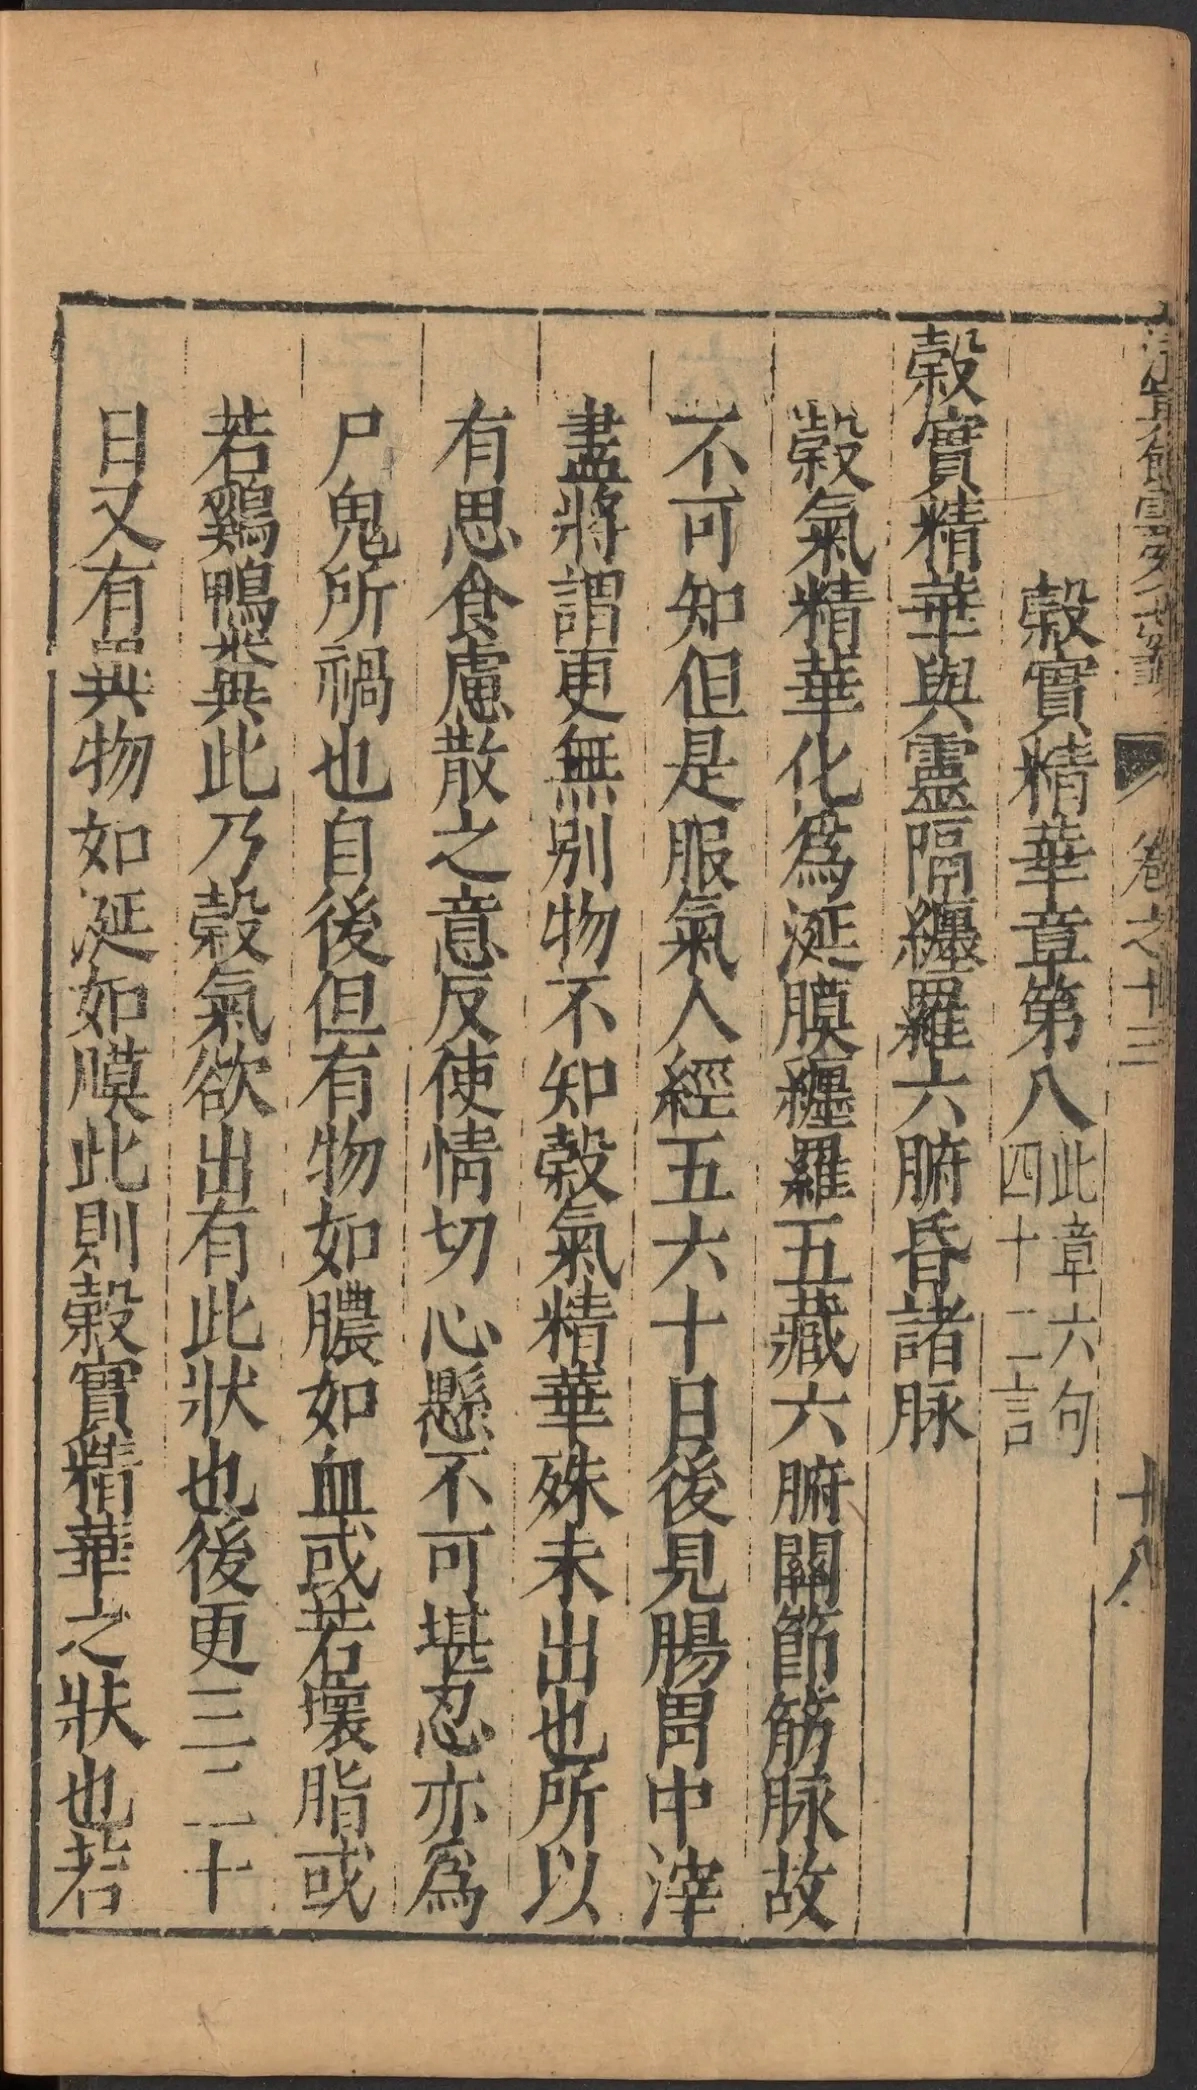 清真館雲笈七籤 卷之十三 十八
穀實精華章第八此章六句四十二言
穀實精華與靈隔纏羅六腑昏諸脉
穀氣精華化爲涎膜纏羅五藏六腑關節筋脉故
不可知但是服氣人經五六十日後見腸胃中滓
盡將謂更無別物不知穀氣精華殊未出也所以
有思食慮散之意反使情切心懸不可堪忍亦爲
尸鬼所禍也自後但有物如膿如血或若壞脂或
若鷄鴨糞此乃穀氣欲出有此狀也後更三二十
日又有異物如涎如膜此則穀實精華之狀也若